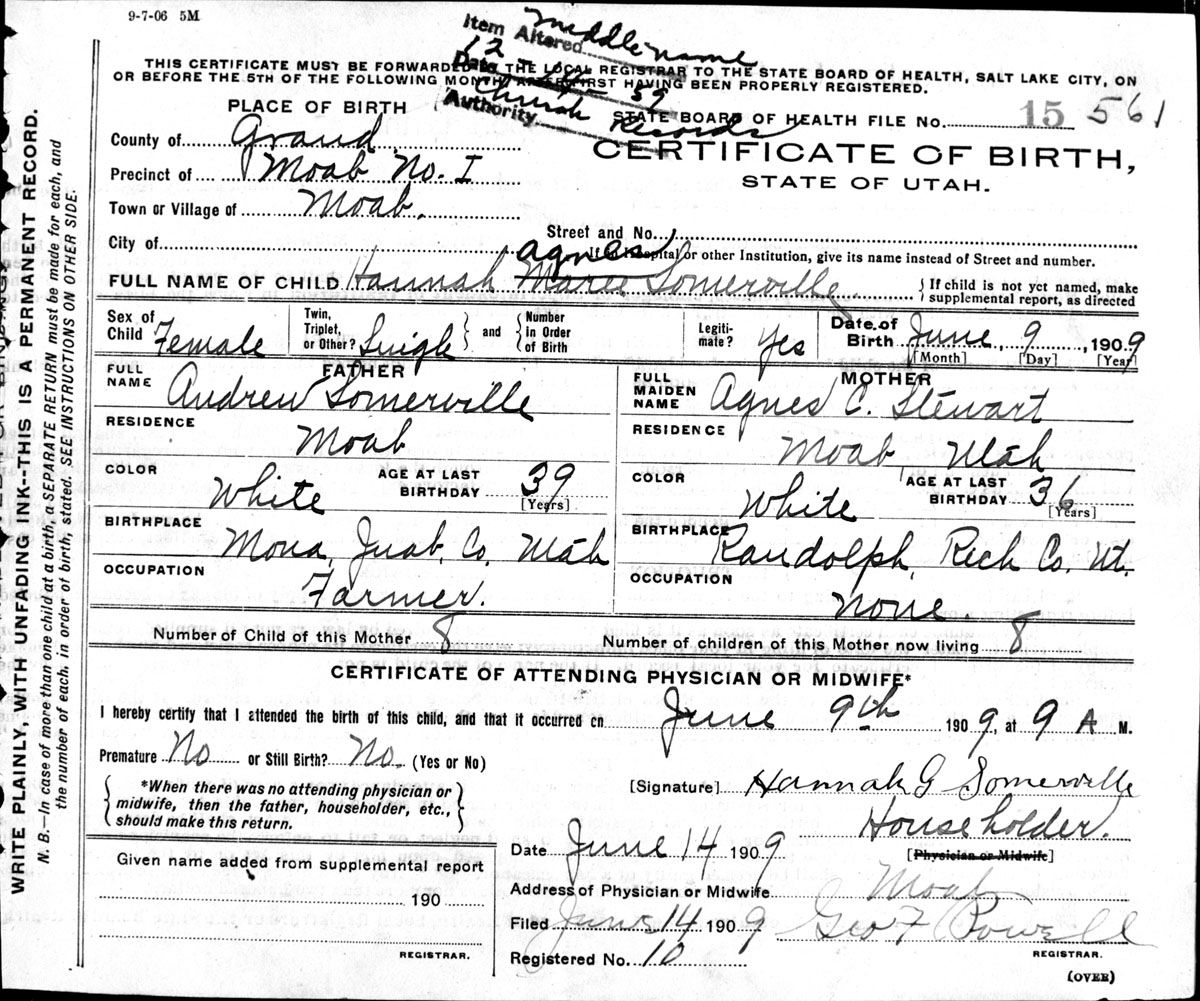 9-7-06 5M
Item Altered middle name
Date 12 - 39
Authority Church Records
THIS CERTIFICATE MUST BE FORWARDED BY THE LOCAL REGISTRAR TO THE STATE BOARD OF HEALTH, SALT LAKE CITY, ON
OR BEFORE THE 5TH OF THE FOLLOWING MONTH, AFTER FIRST HAVING BEEN PROPERLY REGISTERED.
PLACE OF BIRTH
STATE BOARD OF HEALTH FILE No. 15 561
County of Grand
CERTIFICATE OF BIRTH,
Precinct of Moab No. I
STATE OF UTAH.
Town or Village of Moab.
Street and No.
City of
If in Hospital or other Institution, give its name instead of Street and number.
Agnes
FULL NAME OF CHILD Hannah Marie Somerville
{ If child is not yet named, make
supplemental report, as directed
Sex of Child Female
Twin, Triplet, or Other? Single } and { Number in Order of Birth
Legiti-mate? Yes
Date of Birth June 9, 1909
[Month] [Day] [Year]
FATHER
FULL NAME Andrew Somerville
MOTHER
FULL MAIDEN NAME Agnes C. Stewart
RESIDENCE Moab
RESIDENCE Moab Utah
COLOR White AGE AT LAST BIRTHDAY 39 [Years]
COLOR White AGE AT LAST BIRTHDAY 36 [Years]
BIRTHPLACE Mona, Juab, Co, Utah
BIRTHPLACE Randolph, Rich Co. Ut.
OCCUPATION Farmer.
OCCUPATION None.
Number of Child of this Mother 8 Number of children of this Mother now living 8
CERTIFICATE OF ATTENDING PHYSICIAN OR MIDWIFE*
I hereby certify that I attended the birth of this child, and that it occurred on June 9th 1909, at 9 A M.
Premature No or Still Birth? No. (Yes or No)
{ *When there was no attending physician or
midwife, then the father, householder, etc.,
should make this return. }
[Signature] Hannah G Somerville
Householder.
[Physician or Midwife]
Date June 14 1909
Given name added from supplemental report
190
REGISTRAR.
Address of Physician or Midwife Moab
Filed June 14 1909 Geo F Powell
REGISTRAR.
Registered No. 10
(OVER)
WRITE PLAINLY, WITH UNFADING INK--THIS IS A PERMANENT RECORD.
N. B.—In case of more than one child at a birth, a SEPARATE RETURN must be made for each, and
the number of each, in order of birth, stated. SEE INSTRUCTIONS ON OTHER SIDE.